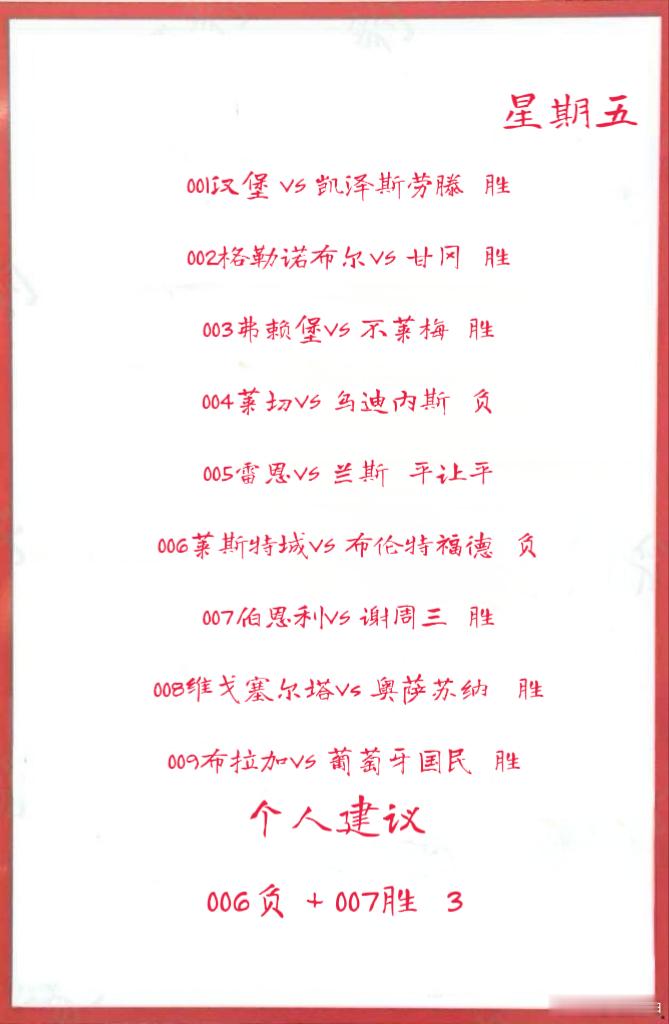 星期五
001汉堡 vs 凯泽斯劳滕 胜
002格勒诺布尔vs 甘冈 胜
003弗赖堡vs 不莱梅 胜
004莱切vs 乌迪内斯 负
005雷恩vs 兰斯 平让平
006莱斯特城vs 布伦特福德 负
007伯恩利vs 谢周三 胜
008维戈塞尔塔vs 奥萨苏纳 胜
009布拉加vs 葡萄牙国民 胜
个人建议
006负 + 007胜 3